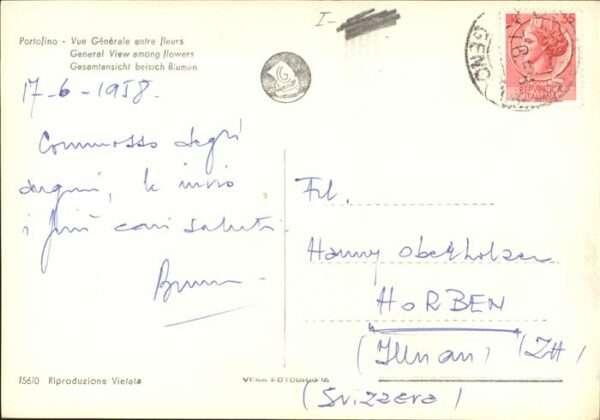 Portofino - Vue Générale entre fleurs
General View among flowers
Gesamtansicht beisich Blumen
I-
17-6-1958.
Commosso degli
auguri, le invio
i più cari saluti.
Frl.
Hanny Oberholzer
HORBEN
(Illnau) (ZH)
(Svizzera)
156/0 Riproduzione Vietata
VERA FOTOGRAFIA
GENO
35
G